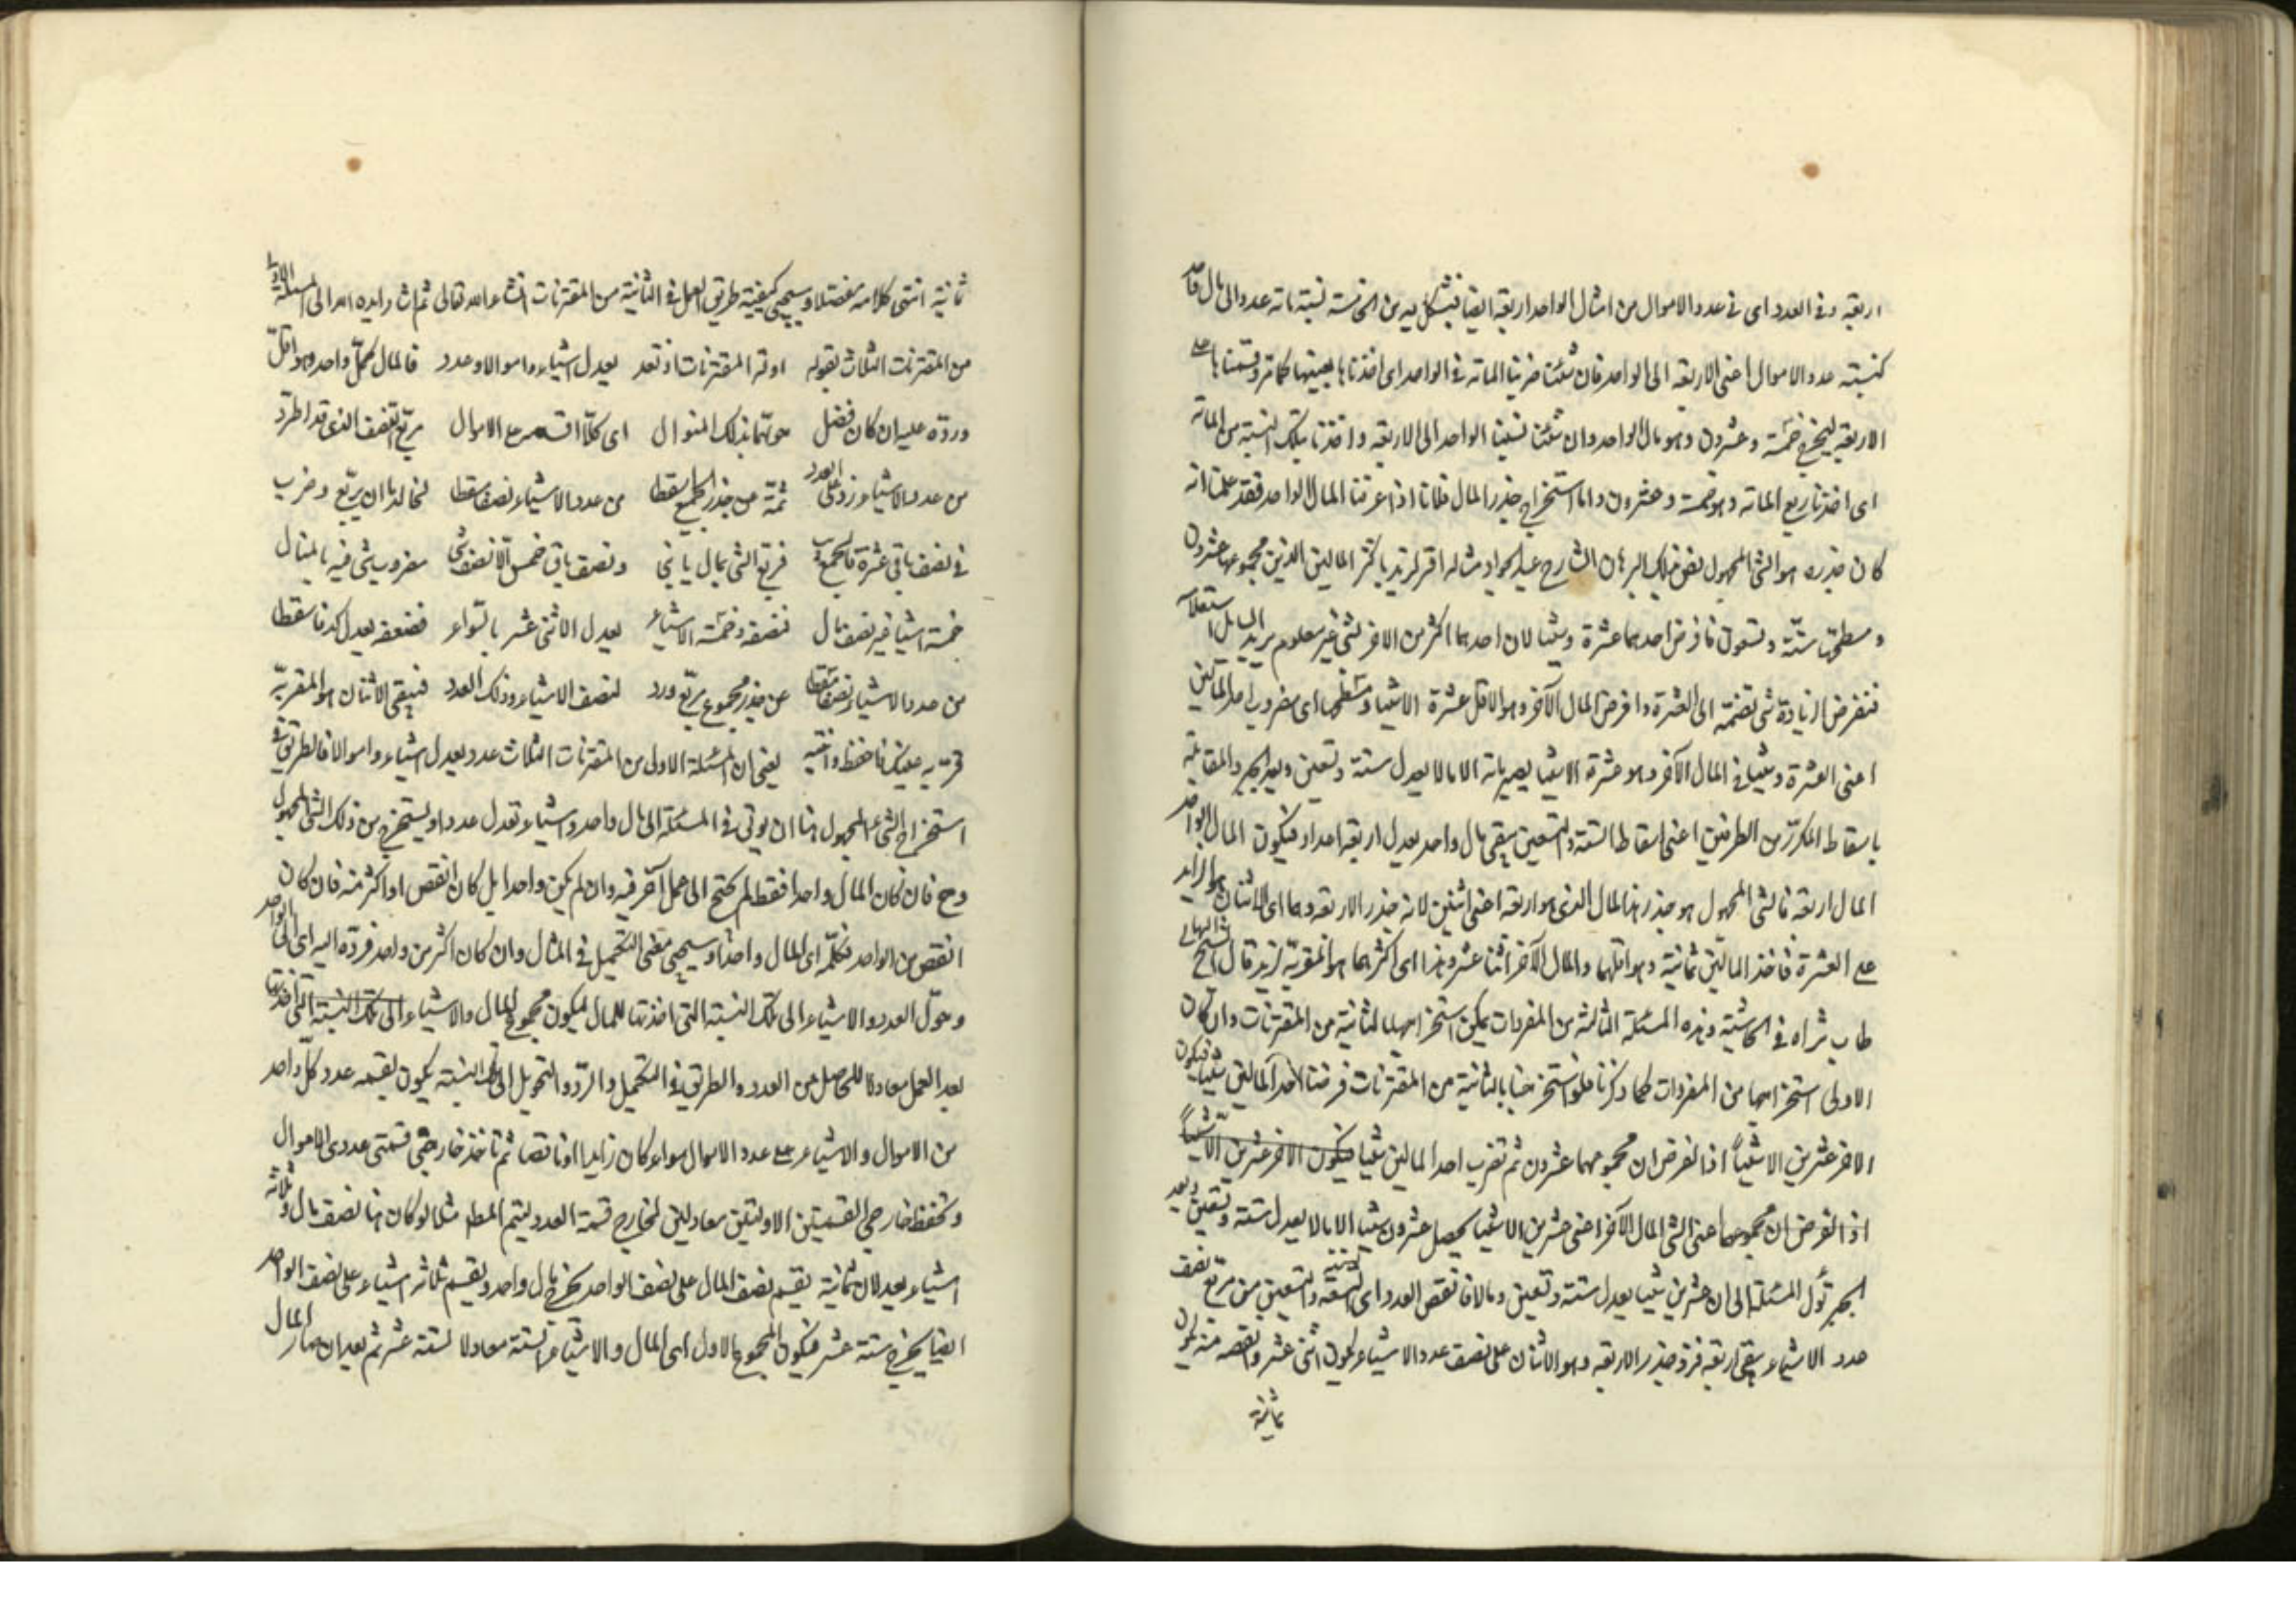 اربعة وفى العدد اى فى عدد الاموال من امثال الواحد اربعة ايضا نسبة مائة عدد الى مال واحد
كنسبة عدد الاموال اعنى الاربعة الى الواحد فان شئت ضربنا المائة فى الواحد اى اخذناها بعينها كما مر وقسمناها على
الاربعة ليخرج خمسة وعشرون وهو مال الواحد وان شئت نسبنا الواحد الى الاربعة واخذنا بتلك النسبة من المائة
اى اخذنا ربع المائة وهو خمسة وعشرون واما استخراج جذر المال فلانا اذا عرفنا المال الواحد فقد علمنا انه
كان جذره هو الشئ المجهول الشارح عليه الجواد مثاله اقر لزيد باكثر المالين الذين مجموعهما عشرون
ومسطحهما ستة وتسعون فافرض احدهما عشرة وشيئا لان احدهما اكثر من الاخر بشئ غير معلوم يريد السائل
فنفرض الزيادة شئ نضمه الى العشرة وافرض المال الآخر وهو الاقل عشرة الا شيئا ومسطحهما اى مضروب احد المالين
اعنى العشرة وشيئا فى المال الآخر وهو عشرة الا شيئا يصير مائة الا مالا يعدل ستة وتسعين وبعد الجبر والمقابلة
باسقاط المكرر من الطرفين اعنى اسقاط الستة والتسعين يبقى مال واحد يعدل اربعة اعداد فيكون المال الواحد
المال اربعة فالشئ المجهول هو جذر هذا المال الذى هو اربعة اعنى اثنين لانه جذر الاربعة وهما اى الاثنان هو الزايد
على العشرة فاخذ المالين ثمانية وهو اقلهما والمال الآخر اثنا عشر وهذا اى اكثرهما هو المقر به لزيد قال الشيخ البهائى
طاب ثراه فى الحاشية وهذه المسئلة الثالثة من المفردات يمكن استخراجها بالثانية من المقترنات وان كان
الاولى استخراجها من المفردات كما ذكرنا فلو استخرجنا بالثانية من المقترنات فرضنا احد المالين شيئا فيكون
الاخر عشرين الا شيئا اذا الفرض ان مجموعهما عشرون ثم نضرب احد المالين شيئا فيكون الآخر عشرين الا شيئا
اذا الفرض ان مجموعهما اعنى الشئ المال الآخر اعنى عشرين الا شيئا يحصل عشرون شيئا الا مالا يعدل ستة وتسعين وبعد
الجبر تؤل المسئلة الى ان عشرين شيئا يعدل ستة وتسعين ومالا فانقص العدد اى الستة والتسعين من مربع نصف
عدد الاشياء يبقى اربعة فزد جذر الاربعة وهو الاثنان على نصف عدد الاشياء يكون اثنى عشر وانقصه منه يكون
ثمانية
ثانية انتهى كلامه مفصلا وسيجئ كيفية طريق العمل فى الثانية من المقترنات انشاء الله تعالى ثم اشار ايده الله الى المسئلة الاولى
من المقترنات الثلاث بقوله اولة المقترنات اذ تعد يعدل اشياء واموالا وعدد فالمال كمل واحد وهو اقل
ورده عليه ان كان فضل حولهما بذلك المنوال اى كلا على الاموال مربع النصف الذى قد اطرد
من عدد الاشياء زد على العدد ثمة من جذر الجميع اسقطا من عدد الاشياء نصفا سقطا ان يربع وضرب
فى نصف باقى عشرة فربع الشئ بمال يا بنى ونصف باقى خمس الا نصف شئ مضروب شئ فيه بالمثال
خمسة اشيا غير نصف مال فنصفه وخمسة الاشياء يعدل الاثنى عشر بالسواء فضعفه يعدل فاسقطا
من عدد الاشياء نصفا سقطا عن جذر مجموع مربع ورد لنصف الاشياء وذلك العدد فيبقى الاثنان هو المقر به
فاحفظ وانتبه يعنى ان المسئلة الاول من المقترنات الثلاث عدد يعدل اشياء واموالا فالطريق فى
استخراج الشئ المجهول هنا ان يؤتى فى المسئلة الى مال واحد واشياء تعدل عددا ويستخرج من ذلك الشئ المجهول
وح فان كان المال واحدا فقط لم يحتج الى عمل آخر فيه وان لم يكن واحدا بل كان انقص او اكثر منه فان كان
انقص من الواحد فكمله اى المال واحدا وسيجئ معنى التكميل فى المثال وان كان اكثر من واحد فرده اليه اى الى الواحد
وحول العدد والاشياء الى تلك النسبة التى اخذتها للمال ليكون مجموع المال والاشياء الى تلك النسبة التى اخذتها
بعد العمل معادلا للحاصل من العدد والطريق فى التكميل والرد والتحويل الى تلك النسبة يكون بقسمة عدد كل واحد
من الاموال والاشياء على عدد الاموال سواء كان زايدا او ناقصا ثم تاخذ خارجى قسمتى عددى الاموال
وتحفظ خارجى القسمتين الاوليتين معادلين لخارج قسمة العدد ليتم المط مثلا لو كان هنا نصف مال وثلاثة
اشياء يعدلان ثمانية يقسم نصف المال على نصف الواحد يخرج مال واحد ويقسم ثلاثة اشياء على نصف الواحد
ايضا يخرج ستة عشر فيكون المجموع الاول اى المال والاشياء الستة معادلا لستة عشر ثم بعد ان صار المال